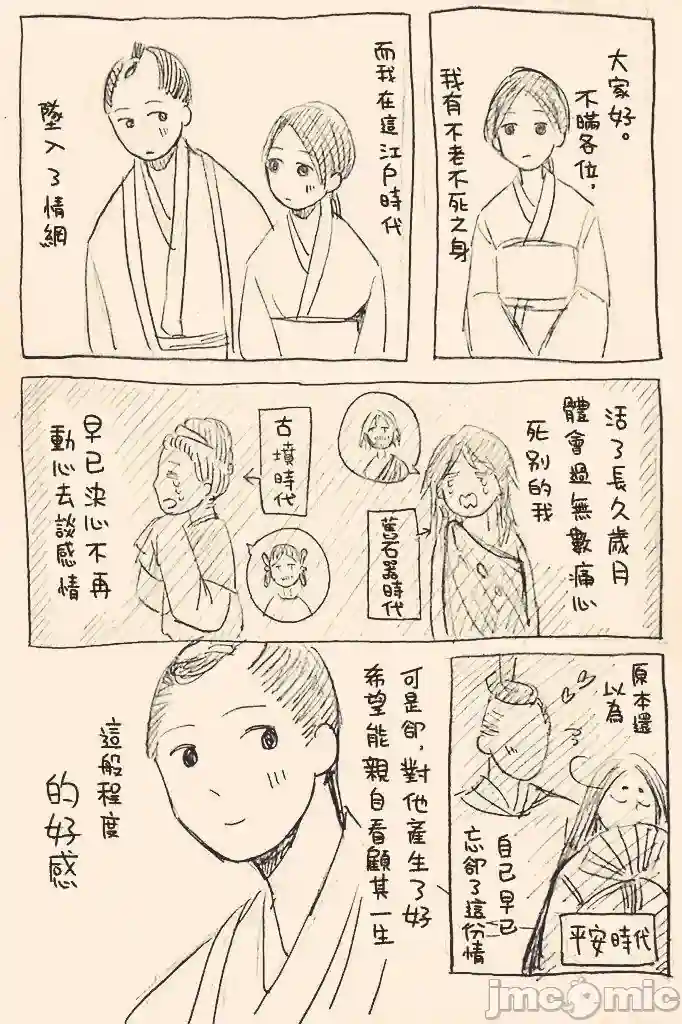 大家好。
不瞞各位，
我有不老不死之身
而我在這江戶時代
墜入了情網
活了長久歲月
體會過無數痛心
死別的我
舊石器時代
古墳時代
早已決心不再
動心去談感情
原本還
以為
自己早已
忘卻了這份情
平安時代
可是卻，對他產生了好
希望能親自看顧其一生
這般程度
的好感
jmcomic